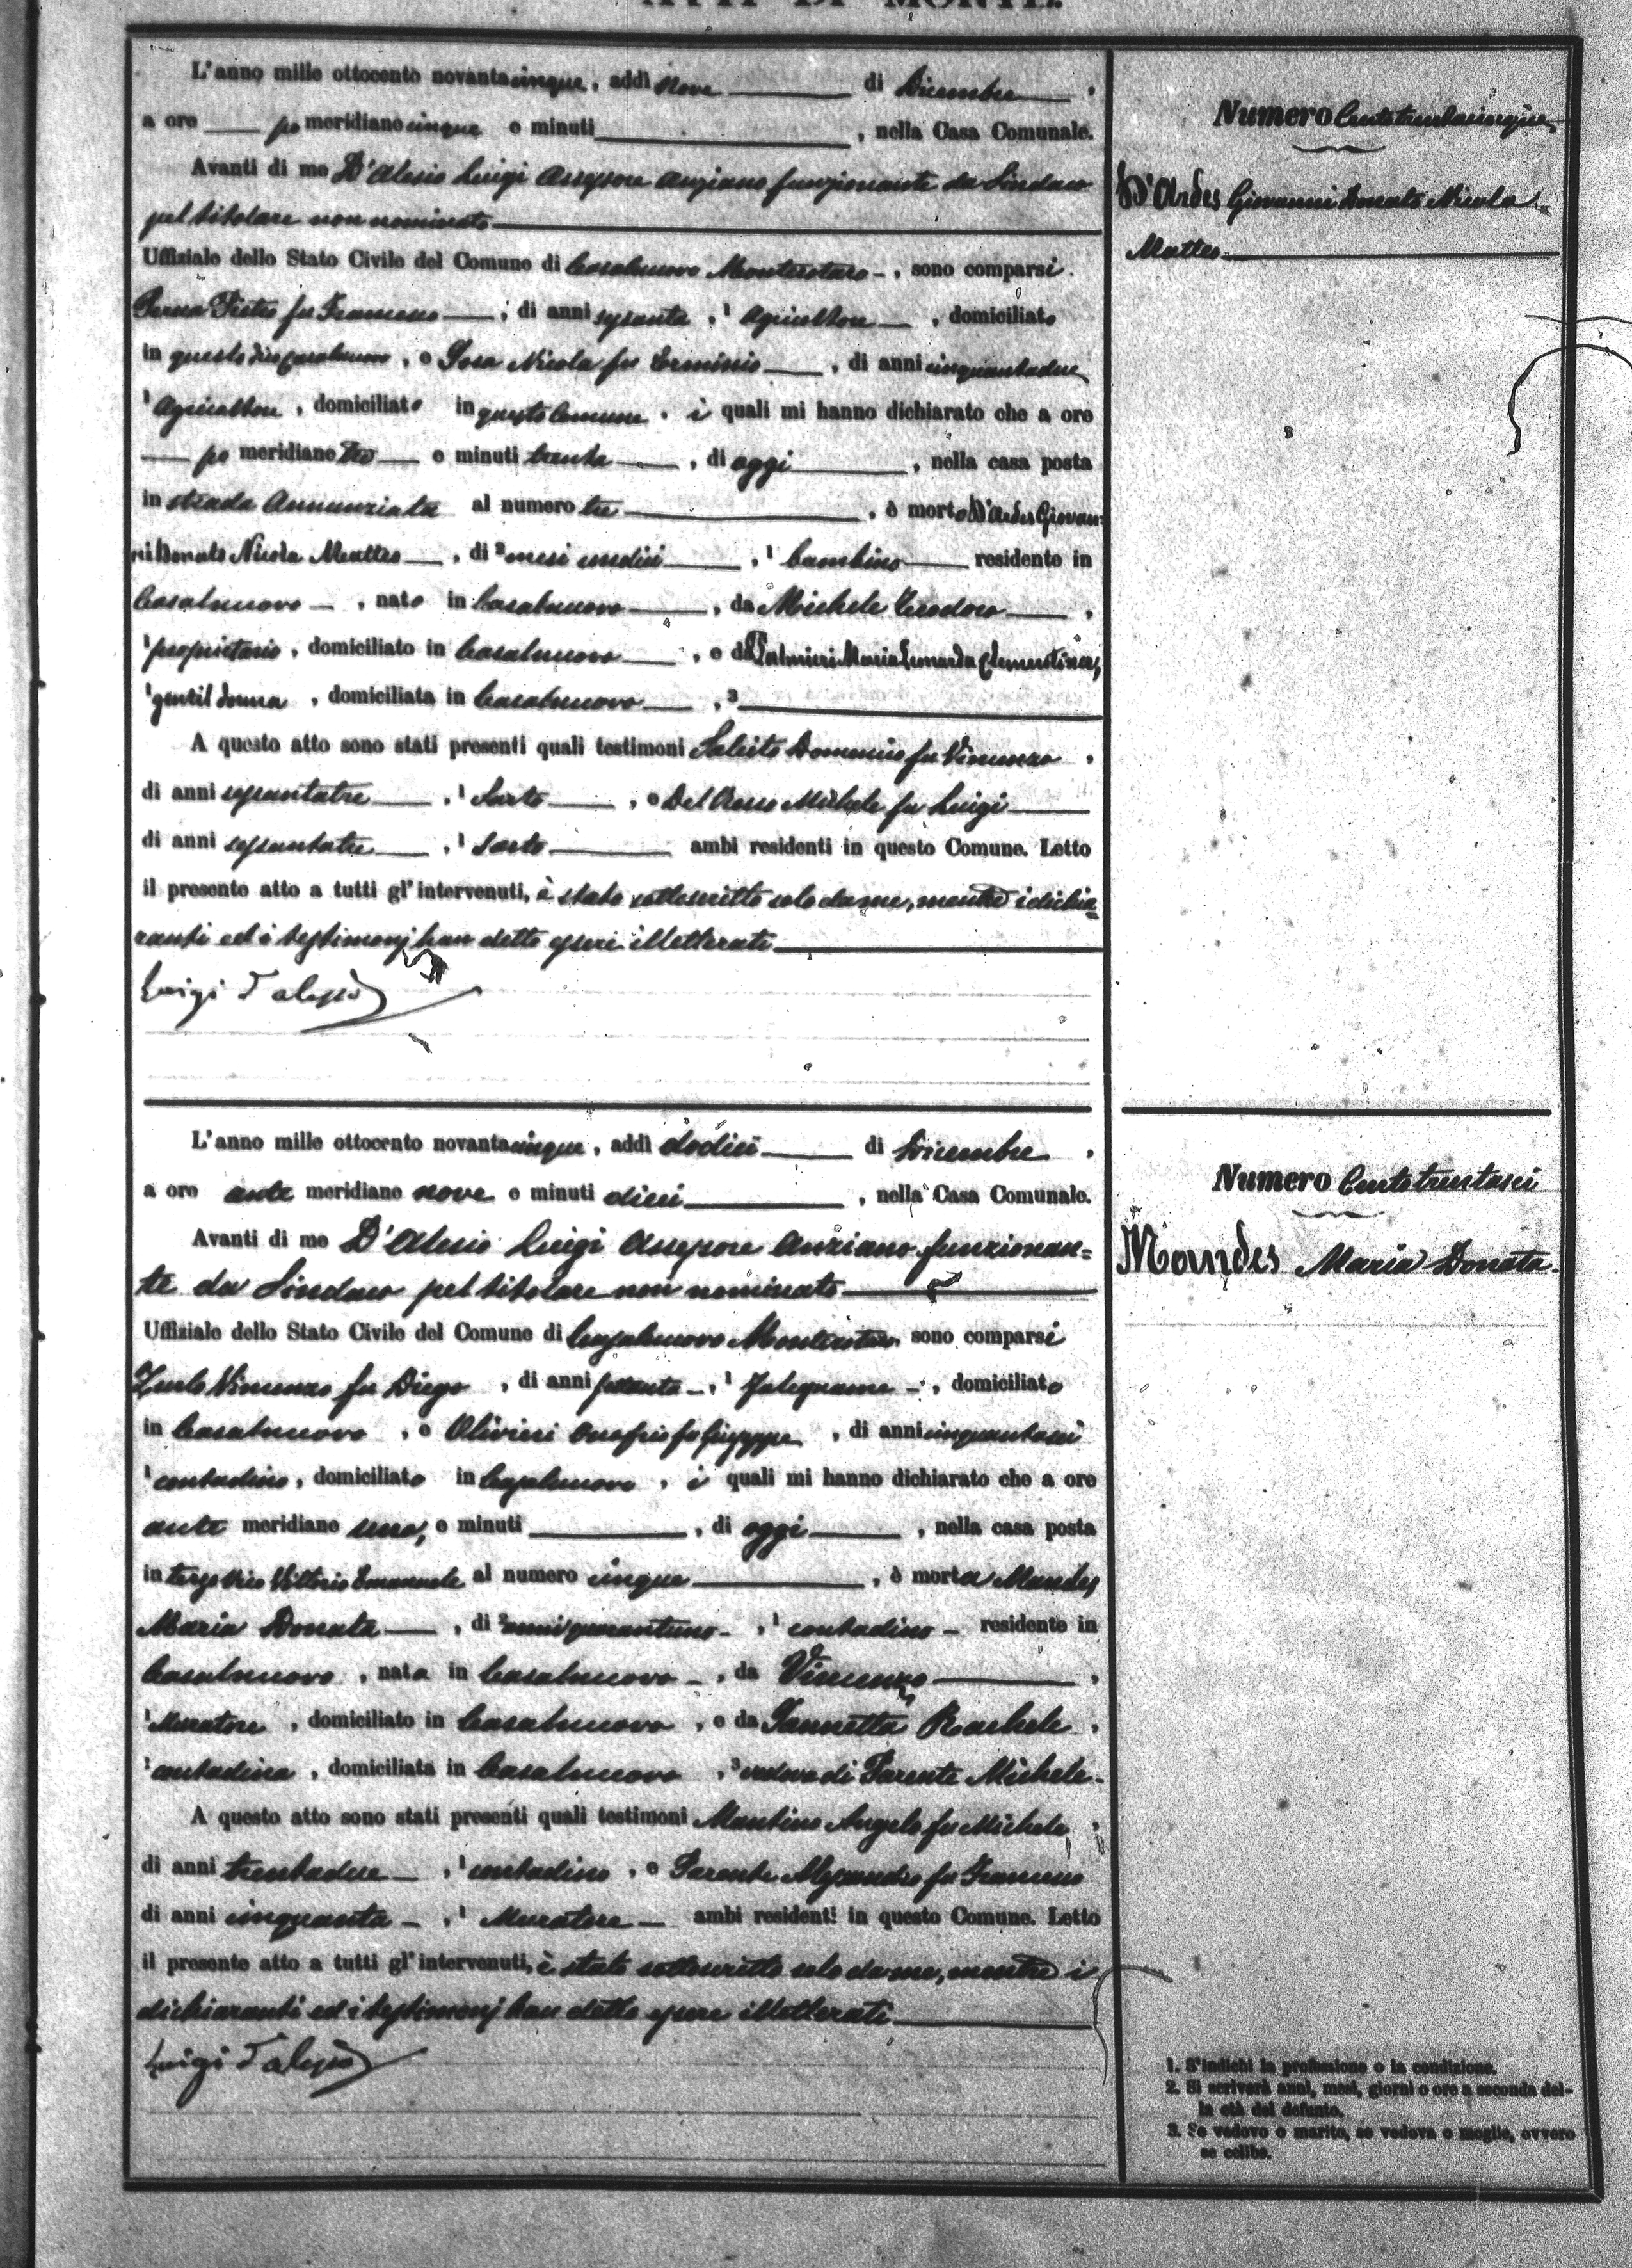 ATTI DI MORTE
L'anno mille ottocento novantacinque, addì nove di Dicembre,
a ore po meridiane cinque e minuti , nella Casa Comunale.
Numero Centotrentacinque
Avanti di me D'Alesio Luigi Assessore anziano funzionante da Sindaco
D'Ardes Giovanni Donato Nicola
pel titolare non nominato
Matteo
Uffiziale dello Stato Civile del Comune di Casalnuovo Monterotaro, sono comparsi
Perna Pietro fu Francesco, di anni sessanta, 1 Agricoltore, domiciliato
in questo di Casalnuovo, e Sosa Nicola fu Erminio, di anni cinquantadue
1 Agricoltore, domiciliato in questo Comune, i quali mi hanno dichiarato che a ore
po meridiane tre e minuti trenta, di oggi, nella casa posta
in strada Annunziata al numero tre, è morto D'Ardes Giovan-
ni Donato Nicola Matteo, di 2 mesi undici, 1 bambino residente in
Casalnuovo, nato in Casalnuovo, da Michele Teodoro,
1 proprietario, domiciliato in Casalnuovo, e da Palmieri Maria Leonarda Clementina,
1 gentil donna, domiciliata in Casalnuovo, 3
A questo atto sono stati presenti quali testimoni Salcito Domenico fu Vincenzo,
di anni sessantatre, 1 Sarto, e Del Rosso Michele fu Luigi
di anni sessantatre, 1 Sarto ambi residenti in questo Comune. Letto
il presente atto a tutti gl'intervenuti, è stato sottoscritto solo da me, mentre i dichia-
ranti ed i testimonj han detto essere illetterati
Luigi D'alesio
L'anno mille ottocento novantacinque, addì dodici di Dicembre,
a ore ante meridiane nove e minuti dieci, nella Casa Comunale.
Numero Centotrentasei
Avanti di me D'Alesio Luigi Assessore Anziano funzionan-
Mandes Maria Donata
te da Sindaco pel titolare non nominato
Uffiziale dello Stato Civile del Comune di Casalnuovo Monterotaro sono comparsi
Zurlo Vincenzo fu Diego, di anni sessanta, 1 Falegname, domiciliato
in Casalnuovo, e Olivieri Onofrio fu Giuseppe, di anni cinquantasei
1 contadino, domiciliato in Casalnuovo, i quali mi hanno dichiarato che a ore
ante meridiane una, e minuti , di oggi, nella casa posta
in terzo Vico Vittorio Emanuele al numero cinque, è morta Mandes
Maria Donata, di 2 anni quarantuno, 1 contadino residente in
Casalnuovo, nata in Casalnuovo, da Vincenzo,
1 Muratore, domiciliato in Casalnuovo, e da Iannetta Rachele,
1 contadina, domiciliata in Casalnuovo, 3 vedova di Parente Michele.
A questo atto sono stati presenti quali testimoni Mantino Angelo fu Michele,
di anni trentadue, 1 contadino, e Parente Alessandro fu Francesco
di anni cinquanta, 1 Muratore ambi residenti in questo Comune. Letto
il presente atto a tutti gl'intervenuti, è stato sottoscritto solo da me, mentre i
dichiaranti ed i testimonj han detto essere illetterati
Luigi D'alesio
1. S'indichi la professione o la condizione.
2. Si scriverà anni, mesi, giorni o ore a seconda del-
la età del defunto.
3. Se vedovo o marito, se vedova o moglie, ovvero
se celibe.